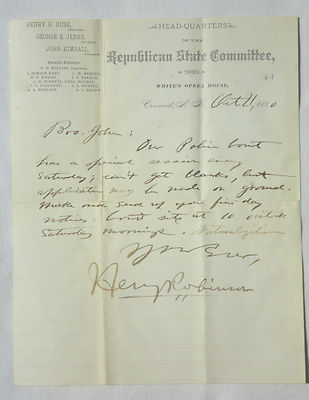 HENRY H. HUSE,
Chairman.
GEORGE E. JENKS,
Secretary.
JOHN KIMBALL,
Treasurer.
Executive Committee.
E. H. ROLLINS, Chairman.
HEAD-QUARTERS
OF THE
Republican State Committee,
1880.
WHITE'S OPERA HOUSE.
Concord, N. H. Oct 21, 1880
Bro. John:
Our Police Court
has a special session every
Saturday; can't get blanks, but
application may be made on ground.
Make and send if you five day
notice. Court sits at 10 o'clock
Saturday mornings.
Yours Ever,
Henry Robinson